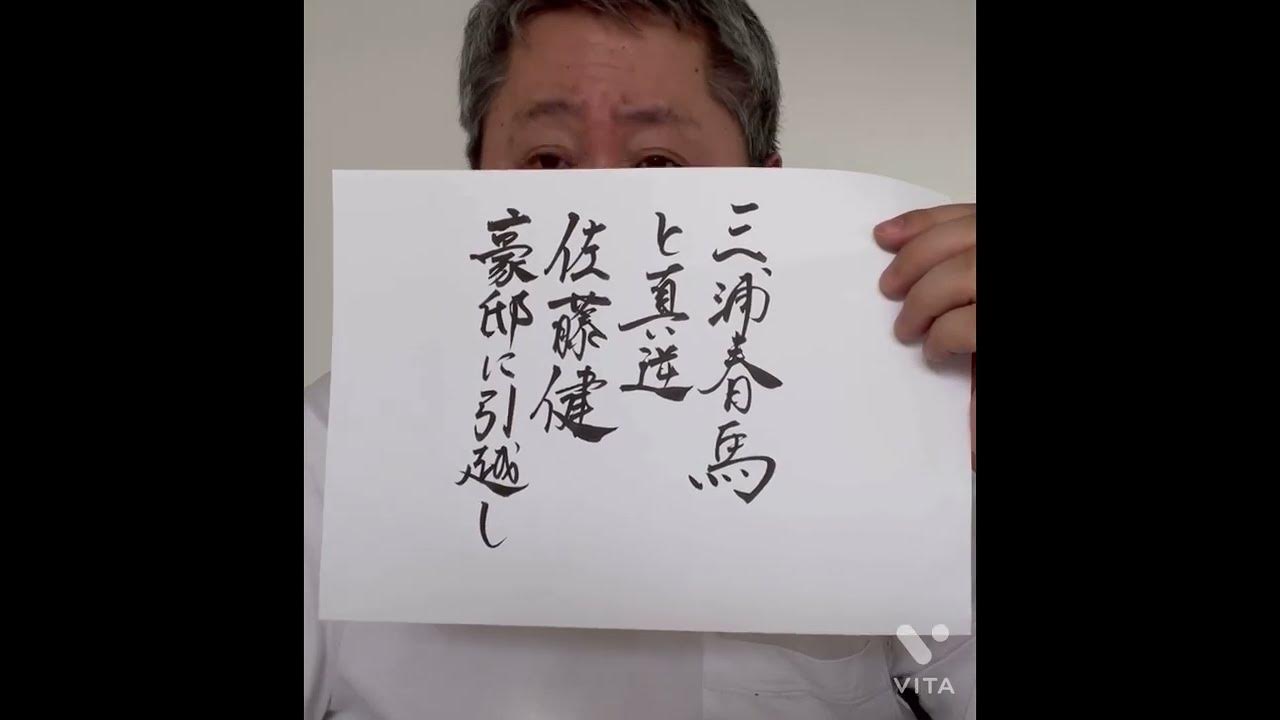 三浦春馬
と真逆
佐藤健
豪邸に引越し
VITA